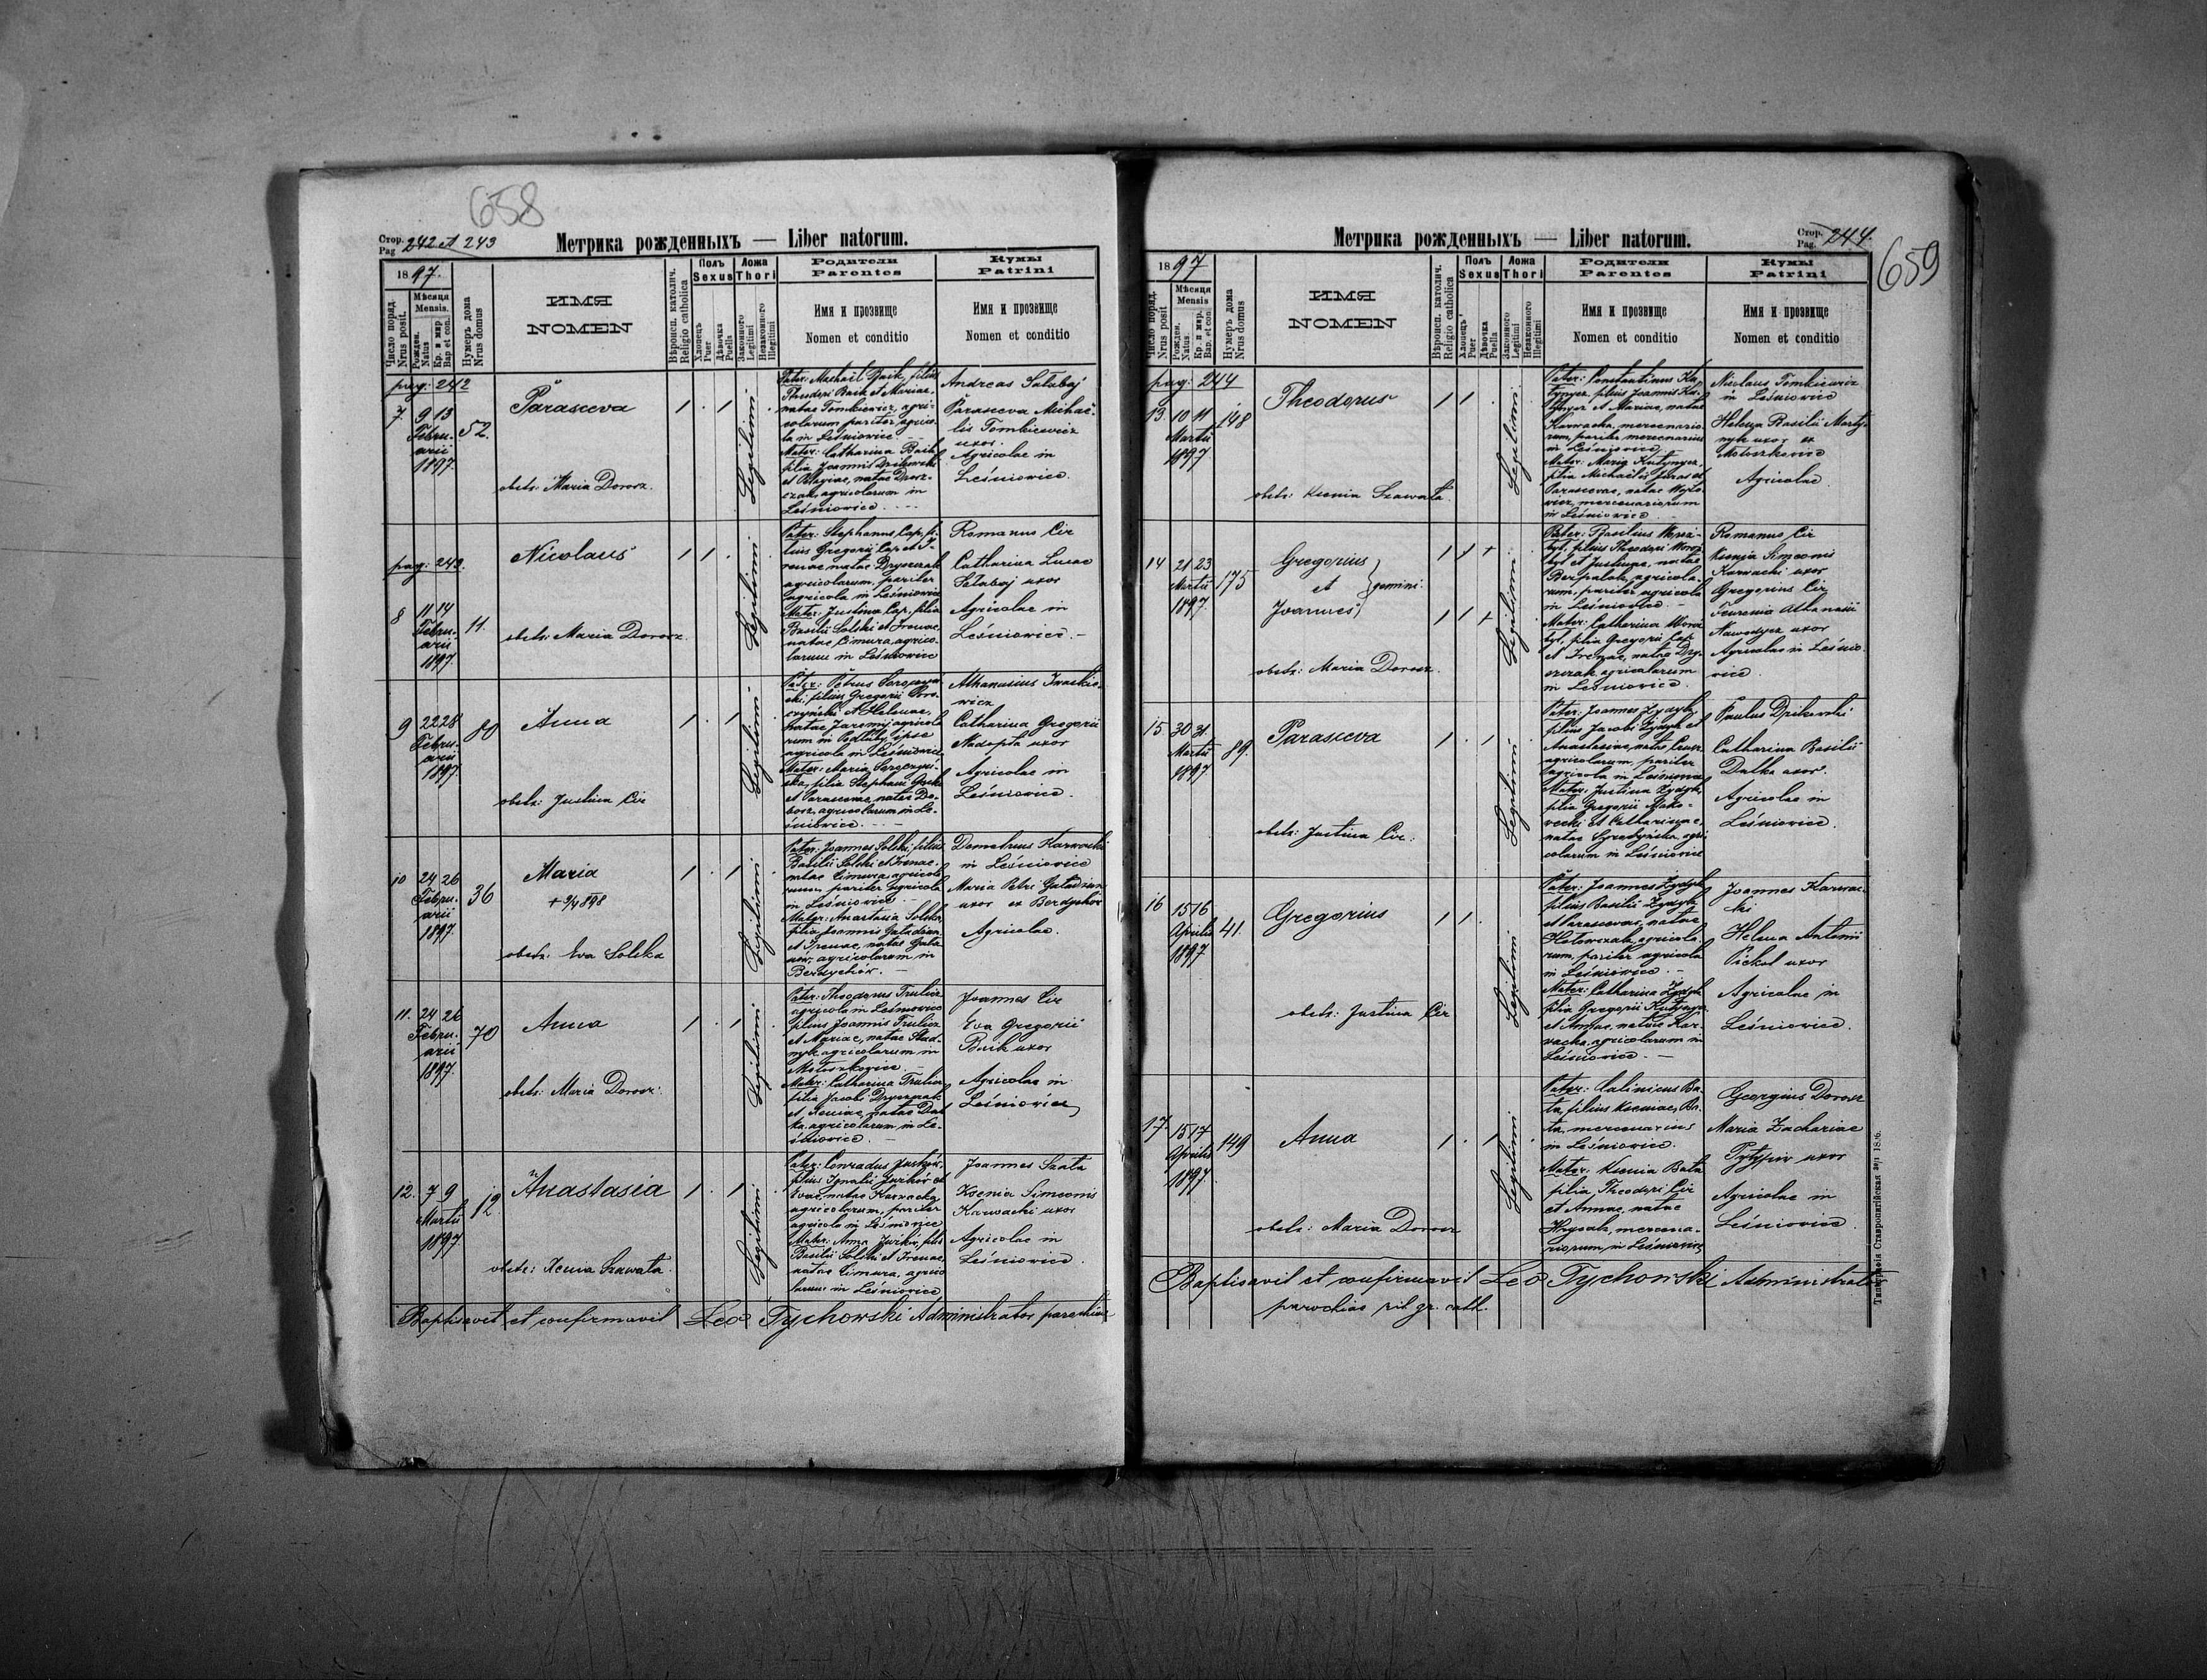 658
Стор.
Pag. 242 et 243
Метрика рожденныхъ — Liber natorum.
1897.
Число поряд.
Nrus posit.
Мѣсяця
Mensis.
Рожден.
Natus
Кр. и мир.
Bap. et con.
Нумеръ дома
Nrus domus
ИМЯ
NOMEN
Вѣроисп. католич.
Religio catholica
Полъ
Sexus
Хлопецъ
Puer
Дѣвочка
Puella
Ложа
Thori
Законного
Legitimi
Незаконного
Illegitimi
Родители
Parentes
Имя и прозвище
Nomen et conditio
Кумы
Patrini
Имя и прозвище
Nomen et conditio
pag: 242
7. 9 13
Febru-
arii
1897.
52.
Parasceva
obstr: Maria Dorosz.
1 . 1
Legitimi
Pater: Michaël Baik, filius
Theodori Baik et Mariae,
natae Tomkiewicz, agri-
colarum pariter agrico-
la in Leśniowice.
Mater: Catharina Baik
filia Joannis Dzikowski
et Pelagiae, natae
agricolarum in
Leśniowice.
Andreas Sałabaj
Parasceva Michaë-
lis Tomkiewicz
uxor.
Agricolae in
Leśniowice.
pag: 243.
8 11 14
Febru-
arii
1897.
11.
Nicolaus
obstr: Maria Dorosz.
1 1 .
Legitimi
Pater: Stephanus Cap, fi-
lius Gregorii Cap et I-
renae natae Dryszczak
agricolarum, pariter
agricola in Leśniowice
Mater: Justina Cap, filia
Basilii Solski et Irenae,
natae Cimura, agrico-
larum in Leśniowice
Romanus Cir
Catharina Lucae
Sałabaj uxor
Agricolae in
Leśniowice.
9 22 28
Febru-
arii
1897
80
Anna
obstr: Justina Cir
1 . 1
Legitimi
Pater: Petrus
filius Gregorii
et Helenae,
natae Jaremij agricola-
rum in Podluby, ipse
agricola in Leśniowice
Mater: Maria
filia Stephani
et Parascevae, natae Do-
bosz, agricolarum in Le-
śniowice.
Athanasius Iwaskie-
wicz
Catharina Gregorii
Nadopta uxor
Agricolae in
Leśniowice.
10 24 26
Febru-
arii
1897.
36
Maria
+ 9/4 898
obstr: Eva Solska
1 . 1
Legitimi
Pater: Joannes Solski, filius
Basilii Solski et Irenae,
natae Cimura, agricola-
rum, pariter agricola
in Leśniowice
Mater: Anastasia Solska,
filia Joannis
et Irenae, natae
agricolarum in
Berdychów.
Demetrius Karwacki
in Leśniowice
Maria Petri
uxor ex Berdychów
Agricolae.
11. 24 26
Febru-
arii
1897.
70
Anna
obstr: Maria Dorosz.
1 . 1
Legitimi
Pater: Theodorus Trulicz
agricola in Leśniowice
filius Joannis Trulicz
et Mariae, natae Stad-
nyk agricolarum in
Mater: Catharina Trulicz
filia Jacobi Dryszczak
et Xeniae, natae Dat-
ka, agricolarum in Le-
śniowice.
Joannes Cir
Eva Gregorii
Baik uxor
Agricolae in
Leśniowice
12. 7 9
Martii
1897.
12
Anastasia
obstr: Xenia Szawała
1 . 1
Legitimi
Pater: Conradus
filius Ignatii Jurków et
Evae, natae Karwacka,
agricolarum, pariter
agricola in Leśniowice
Mater: Anna Jurków, filia
Basilii Solski et Irenae,
natae Cimura, agrico-
larum in Leśniowice
Joannes Szała
Ksenia Simeonis
Karwacki uxor
Agricolae in
Leśniowice.
Baptisavit et confirmavit Leo Tychowski Administrator parochiae
Метрика рожденныхъ — Liber natorum.
Стор.
Pag. 244.
659
1897
Число поряд.
Nrus posit
Мѣсяця
Mensis
Рожден.
Natus.
Кр. и мир.
Bap. et con.
Нумеръ дома
Nrus domus
ИМЯ
NOMEN
Вѣроисп. католич.
Religio catholica
Полъ
Sexus
Хлопецъ
Puer
Дѣвочка
Puella
Ложа
Thori
Законного
Legitimi
Незаконного
Illegitimi
Родители
Parentes
Имя и прозвище
Nomen et conditio
Кумы
Patrini
Имя и прозвище
Nomen et conditio
pag: 244
13. 10 11
Martii
1897
148
Theodorus
obstr: Ksenia Szawała.
1 1 .
Legitimi
Pater: Constantinus Ku-
tynycz, filius Joannis Ku-
tynycz et Mariae, natae
Karwacka, mercenario-
rum, pariter mercenarius
in Leśniowice
Mater: Maria Kutynycz,
filia Michaëlis
Parascevae, natae Wojto-
wicz, mercenariorum
in Leśniowice
Nicolaus Tomkiewicz
in Leśniowice
Helena Basilii Marty-
nyk uxor ex
Agricolae.
14 21 23
Martii
1897.
175
Gregorius
et
Joannes
gemini
obstr: Maria Dorosz.
1 1 +
1 1 +
Legitimi
Pater: Basilius
filius Theodori
et Justinae, natae
agricola-
rum, pariter agricola
in Leśniowice.
Mater: Catharina
filia Gregorii Cap
et Irenae, natae Dry-
szczak agricolarum
in Leśniowice.
Romanus Cir
Ksenia Simeonis
Karwacki uxor
Gregorius Cir
Athanasii
uxor
Agricolae in Leśnio-
wice.
15. 30 31.
Martii
1897
89.
Parasceva
obstr: Justina Cir.
1 . 1
Legitimi
Pater: Joannes Zydyk,
filius Jacobi Zydyk et
Anastasiae, natae
agricolarum, pariter
agricola in Leśniowice
Mater: Justina Zydyk,
filia Gregorii Mako-
wecki et Catharinae,
natae agri-
colarum in Leśniowice
Paulus Dzikowski
Catharina Basilii
Datka uxor.
Agricolae in
Leśniowice.
16 15 16
Aprilis
1897
41.
Gregorius
obstr: Justina Cir
1 1 .
Legitimi
Pater: Joannes Zydyk
filius Basilii Zydyk
et Parascevae, natae
agricola-
rum, pariter agricola
in Leśniowice.
Mater: Catharina Zydyk
filia Gregorii Kutynycz
et Annae, natae Kar-
wacka, agricolarum in
Leśniowice.
Joannes Karwac-
ki
Helena Antonii
Pickol uxor
Agricolae in
Leśniowice.
17. 15 17
Aprilis
1897.
149
Anna
obstr: Maria Dorosz
1 . 1
Legitimi
Pater: Calinicus Ba-
ta, filius Kseniae, Ba-
ta mercenarius
in Leśniowice.
Mater: Ksenia Bata
filia Theodori Cir
et Annae, natae
Hrycak, mercena-
riorum, in Leśniowice
Georgius Dorosz
Maria Zachariae
uxor
Agricolae in
Leśniowice.
Baptisavit et confirmavit Leo Tychowski Administrator
parochiae rit. gr. cath.
Типографія Ставропигійская